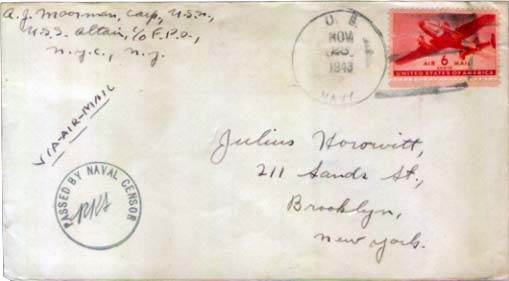 A. J. Moorman, Carp, U.S.N.,
U.S.S. Altair, c/o F.P.O.,
N.Y.C., N.Y.
U. S.
NOV
1943
NAVY
AIR 6 MAIL
CENTS
UNITED STATES OF AMERICA
VIA-AIR-MAIL
Julius Horowitt,
211 Sands St.,
Brooklyn,
New York.
PASSED BY NAVAL CENSOR